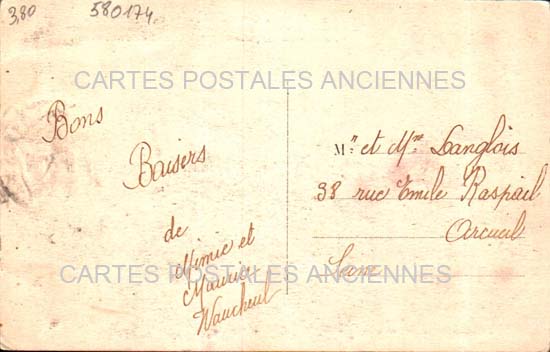 3,80
580174
CARTES POSTALES ANCIENNES
Bons
Baisers
de
Mimie et
Maurice
Vaucheul
Mr et Mme Langlois
38 rue Emile Raspail
Arcueil
Seine
CARTES POSTALES ANCIENNES